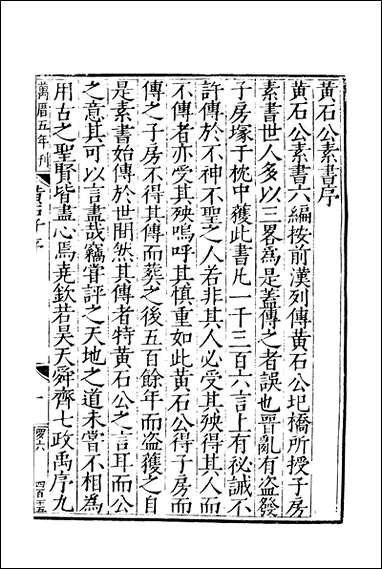 黃石公素書序
黃石公素書六編按前漢列傳黃石公圯橋所授子房
素書世人多以三畧為是蓋傳之者誤也晉亂有盜發
子房塚于枕中獲此書凡一千三百六言上有祕誡不
許傳於不神不聖之人若非其人必受其殃得其人而
不傳者亦受其殃嗚呼其慎重如此黃石公得子房而
傳之子房不得其傳而葬之後五百餘年而盜獲之自
是素書始傳於世間然其傳者特黃石公之言耳而公
之意其可以言盡哉竊甞評之天地之道未甞不相為
用古之聖賢皆盡心焉堯欽若昊天舜齊七政禹序九
萬曆五年刊
黃石子序
一
慶六
四百十五